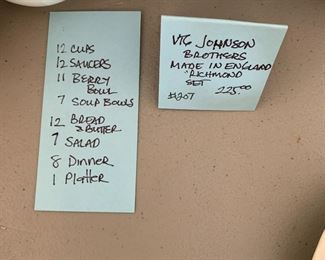 12 CUPS
12 SAUCERS
11 BERRY
BOWL
7 SOUP BOWLS
12 BREAD
& BUTTER
7 SALAD
8 DINNER
1 PLATTER
VTG JOHNSON
BROTHERS
MADE IN ENGLAND
"RICHMOND
SET
225.00